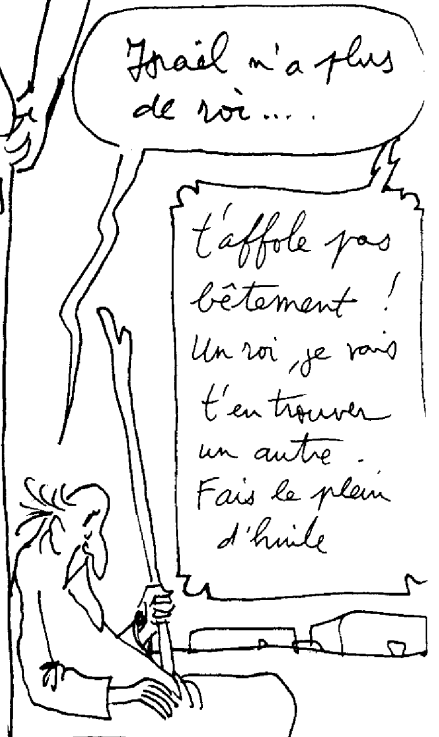 Israël n'a plus
de roi....
t'affole pas
bêtement !
Un roi, je vais
t'en trouver
un autre.
Fais le plein
d'huile